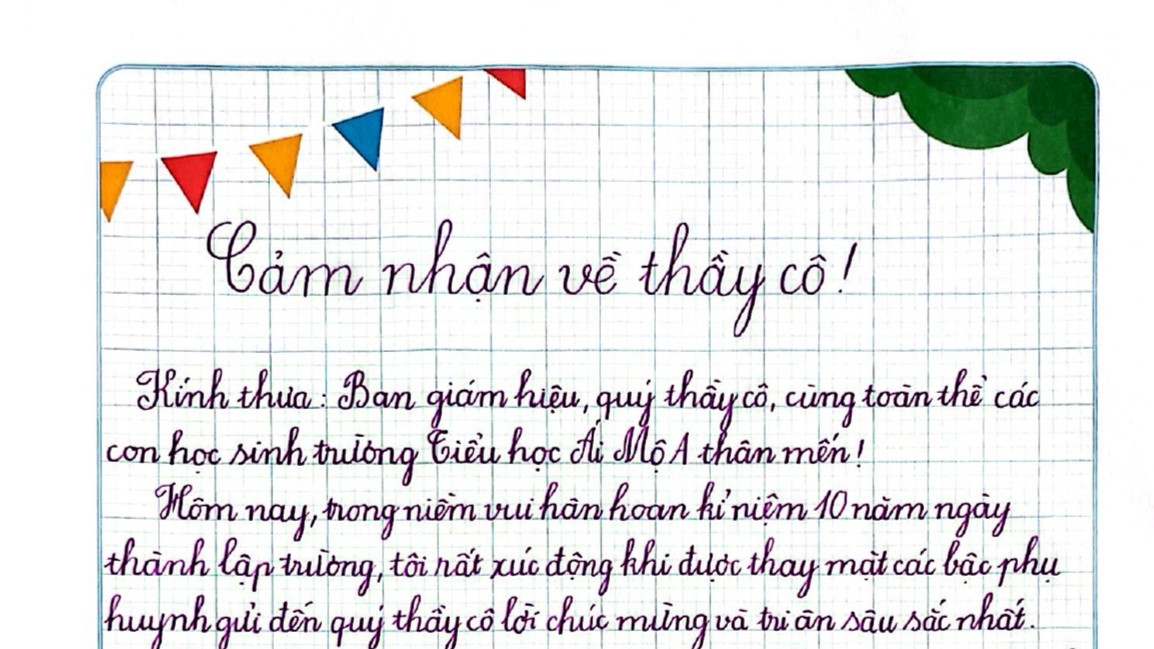 Cảm nhận về thầy cô!
Kính thưa: Ban giám hiệu, quý thầy cô, cùng toàn thể các
con học sinh trường Tiểu học Ái Mộ A thân mến!
Hôm nay, trong niềm vui hân hoan kỉ niệm 10 năm ngày
thành lập trường, tôi rất xúc động khi được thay mặt các bậc phụ
huynh gửi đến quý thầy cô lời chúc mừng và tri ân sâu sắc nhất.